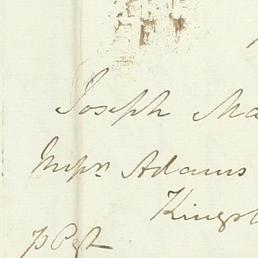 Joseph Ma
Messrs Adams
Kingst
p Post